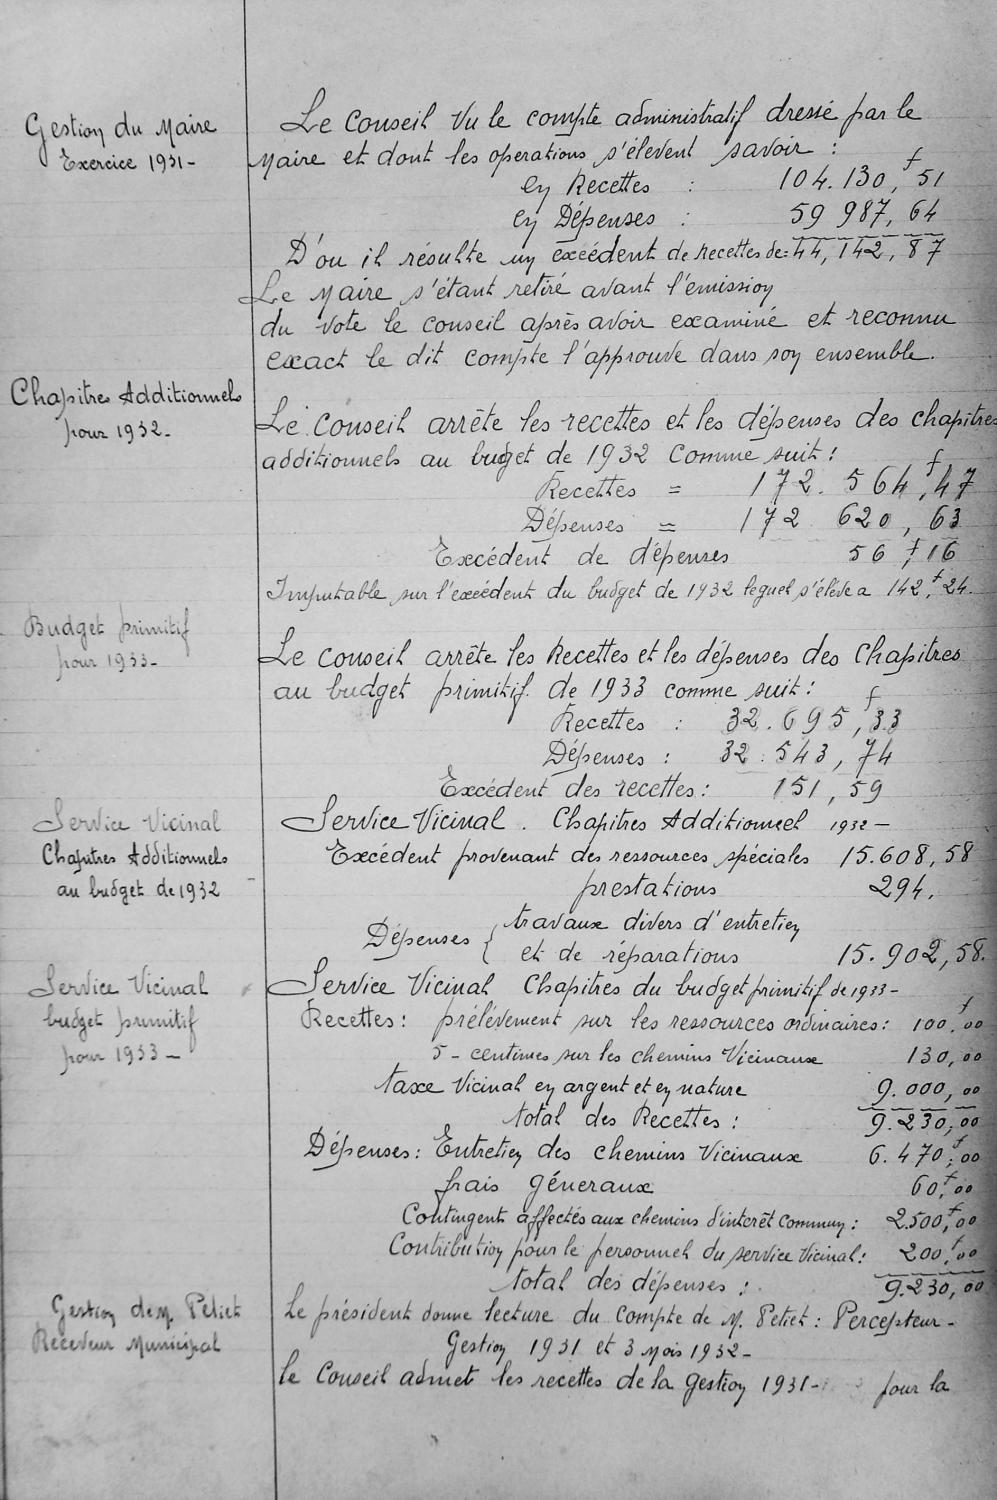 Gestion du Maire
Exercice 1931-
Le Conseil Vu le compte administratif dressé par le
Maire et dont les operations s'élevent savoir :
en Recettes : 104.130,f 51
en Dépenses : 59 987, 64
D'ou il résulte un excédent de recettes de: 44,142,87
Le Maire s'étant retiré avant l'emission
du vote le conseil après avoir examiné et reconnu
exact le dit compte l'approuve dans son ensemble.
Chapitres Additionnels
pour 1932.
Le Conseil arrête les recettes et les dépenses des chapitres
additionnels au budget de 1932 comme suit :
Recettes = 172. 564,f 47
Dépenses = 172 620, 63
Excédent de dépenses 56 f,16
Imputable sur l'excédent du budget de 1932 lequel s'élève a 142,f 24.
Budget primitif
pour 1933-
Le Conseil arrête les Recettes et les dépenses des Chapitres
au budget primitif. de 1933 comme suit :
Recettes : 32.695,f 33
Dépenses : 32.543, 74
Excédent des recettes : 151, 59
Service Vicinal
Chapitres Additionnels
au budget de 1932
Service Vicinal. Chapitres Additionnel 1932-
Excédent provenant des ressources spéciales 15.608,58
prestations 294.
Dépenses { travaux divers d'entretien
et de réparations 15.902,58.
Service Vicinal
budget primitif
pour 1933-
Service Vicinal Chapitres du budget primitif de 1933-
Recettes : prélévement sur les ressources ordinaires : 100,f00
5 - centimes sur les chemins Vicinaux 130,00
taxe Vicinal en argent et en nature 9.000,00
total des Recettes : 9.230,00
Dépenses : Entretien des chemins Vicinaux 6.470,f00
frais géneraux 60,f00
Contingents affectés aux chemins d'interêt commun : 2.500,f00
Contribution pour le personnel du service Vicinal : 200,f00
total des dépenses : 9.230,00
Gestion de M. Petiet
Receveur Municipal
Le président donne lecture du Compte de M. Petiet : Percepteur -
Gestion 1931 et 3 Mois 1932-
le Conseil admet les recettes de la gestion 1931- pour la